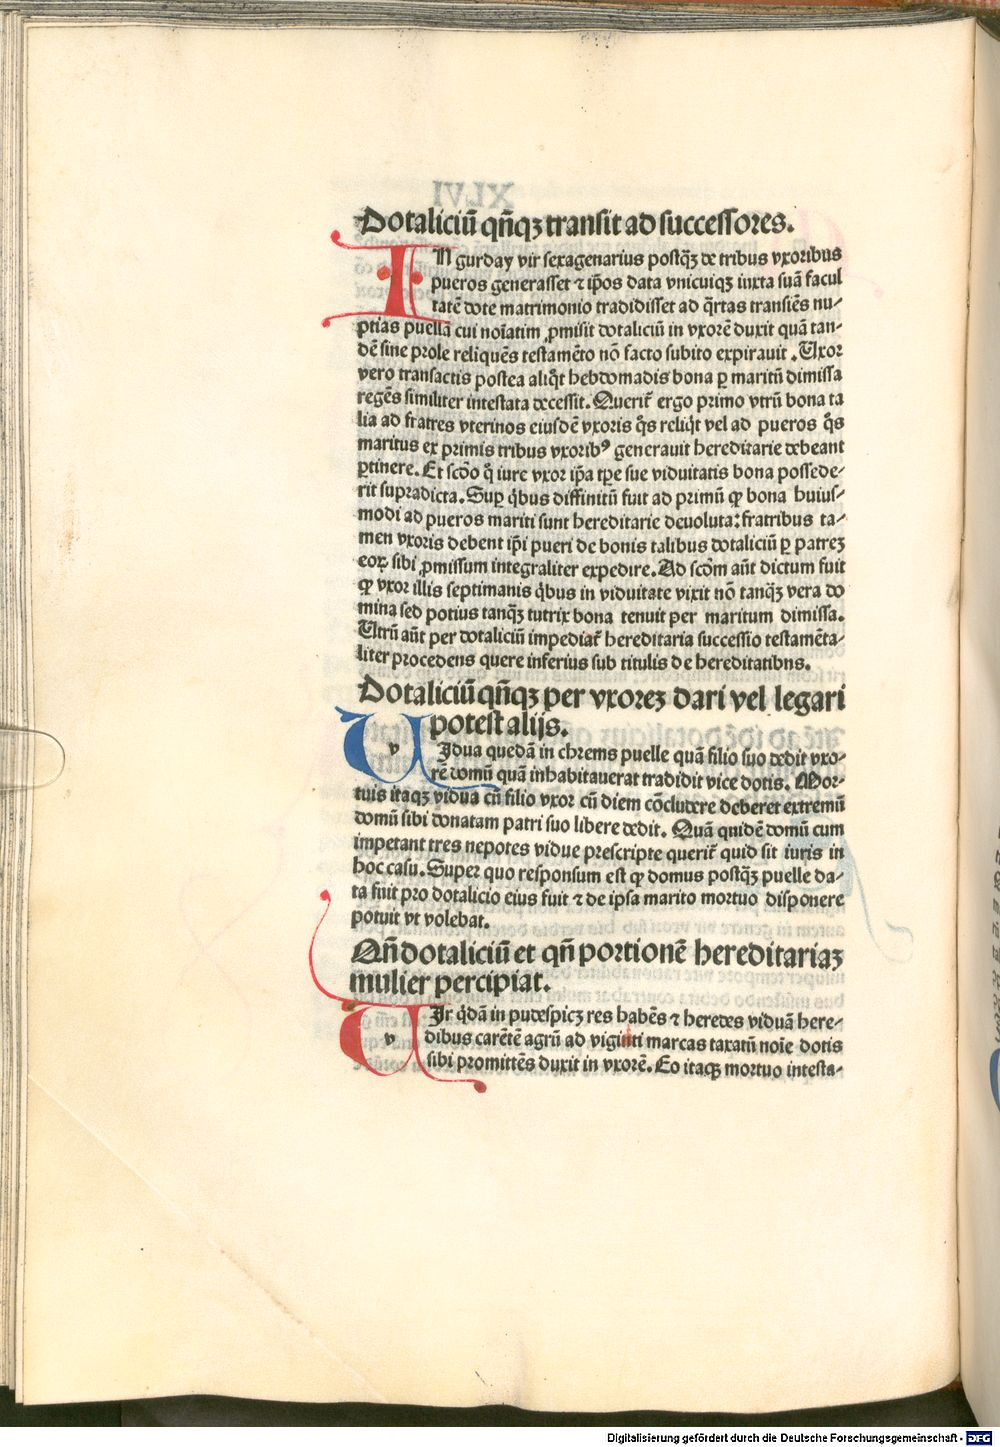 Dotaliciū qn̄qꝫ transit ad successores.
IN gurday vir sexagenarius postqꝫ̄ de tribus vxoribus
pueros generasset ⁊ ip̄os data vnicuiqꝫ iuxta suā facul
tatē dote matrimonio tradidisset ad q̄rtas transiēs nu⸗
ptias puellā cui noīatim ꝓmisit dotaliciū in vxorē duxit quā tan⸗
dē sine prole reliquēs testamēto nō facto subito expirauit. Uxor
vero transactis postea aliq̄t hebdomadis bona ꝑ maritū dimissa
regēs similiter intestata decessit. Querit᷑ ergo primo vtrū bona ta
lia ad fratres vterinos eiusdē vxoris q̄s reliq̇t vel ad pueros q̄s
maritus ex primis tribus vxoribꝰ generauit hereditarie debeant
ꝑtinere. Et scd̄o q̄ iure vxor ip̄a tꝑe sue viduitatis bona possede⸗
rit supradicta. Suꝑ q̇bus diffinitū fuit ad primū ꝙ bona huius⸗
modi ad pueros mariti sunt hereditarie deuoluta: fratribus ta⸗
men vxoris debent ip̄i pueri de bonis talibus dotaliciū ꝑ patreꝫ
eoꝝ sibi ꝓmissum integraliter expedire. Ad scd̄m aūt dictum fuit
ꝙ vxor illis septimanis q̇bus in viduitate vixit nō tanqꝫ̄ vera do
mina sed potius tanqꝫ̄ tutrix bona tenuit per maritum dimissa.
Utrū aūt per dotaliciū impediat᷑ hereditaria successio testamēta⸗
liter procedens quere inferius sub titulis de hereditatibus.
Dotaliciū qn̄qꝫ per vxoreꝫ dari vel legari
potest alijs.
v
Idua quedā in chrems puelle quā filio suo dedit vxo⸗
rē domū quā inhabitauerat tradidit vice dotis. Mor⸗
tuis itaqꝫ vidua cū filio vxor cū diem cōcludere deberet extremū
domū sibi donatam patri suo libere dedit. Quā quidē domū cum
impetant tres nepotes vidue prescripte querit᷑ quid sit iuris in
hoc casu. Super quo responsum est ꝙ domus postqꝫ̄ puelle da⸗
ta fuit pro dotalicio eius fuit ⁊ de ipsa marito mortuo disponere
potuit vt volebat.
Qn̄ dotaliciū et qn̄ portionē hereditariaꝫ
mulier percipiat.
v
Ir q̇dā in pudespicꝫ res habēs ⁊ heredes viduā here⸗
dibus carētē agrū ad viginti marcas taxatū noīe dotis
sibi promittēs duxit in vxorē. Eo itaqꝫ mortuo intesta⸗
Digitalisierung gefördert durch die Deutsche Forschungsgemeinschaft - DFG